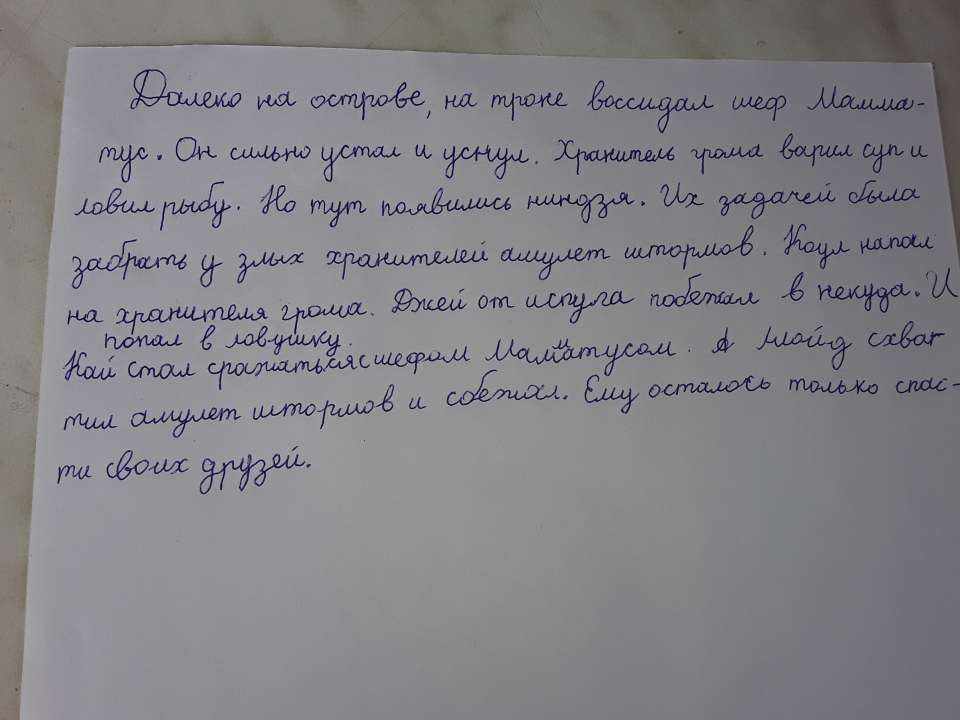 Далеко на острове, на троне воссидал шеф Мамма-
тус. Он сильно устал и уснул. Хранитель грома варил суп и
ловил рыбу. Но тут появились ниндзя. Их задачей была
забрать у злых хранителей амулет штормов. Коул напал
на хранителя грома. Джей от испуга побежал в некуда. И
попал в ловушку.
Кай стал сражаться с шефом Мамматусом. А Ллойд схват
тил амулет штормов и сбежал. Ему осталось только спас-
ти своих друзей.